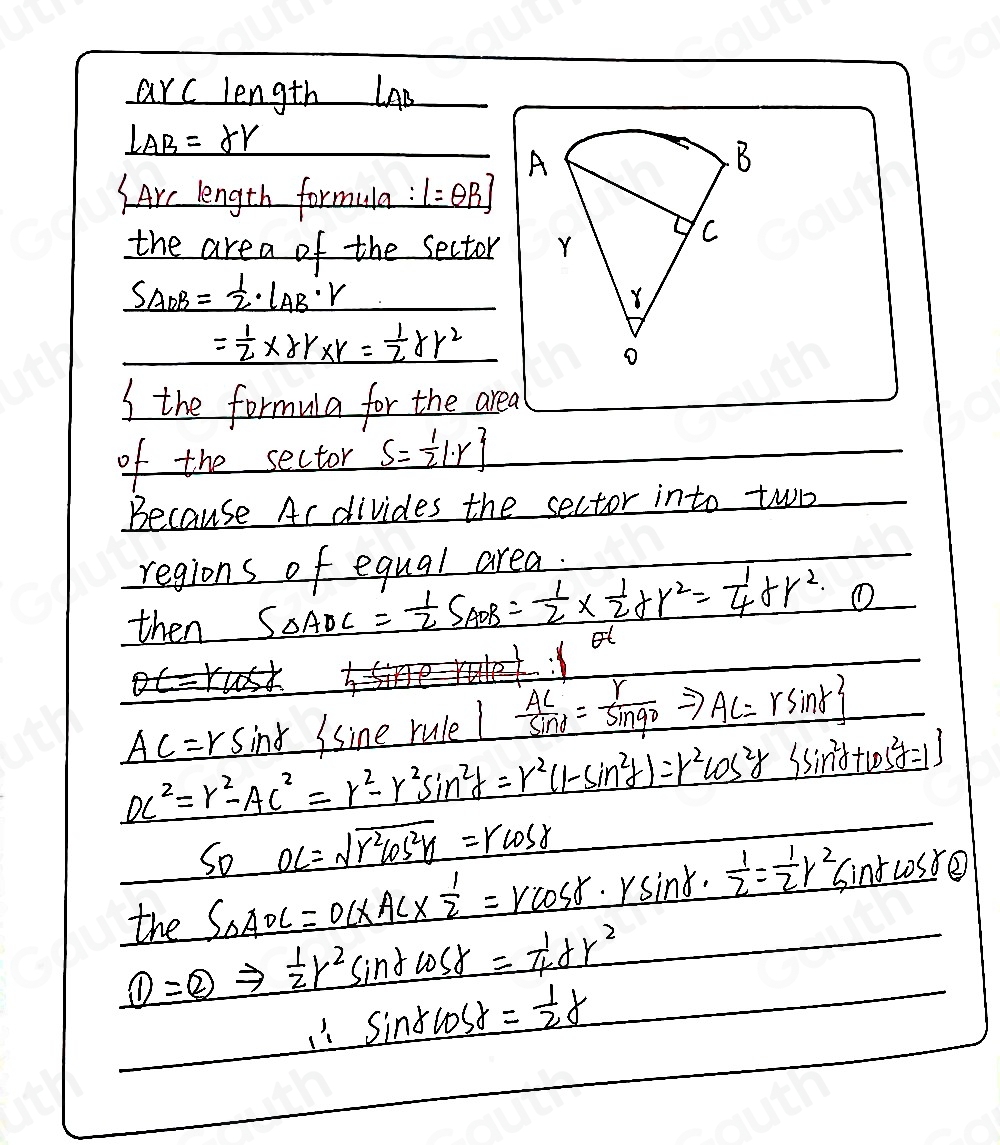 arc length l_AB
l_AB = γr
{Arc length formula : l = θR}
the area of the sector
S_AOB = 1/2 · l_AB · r
= 1/2 × γr × r = 1/2 γr²
{ the formula for the area
of the sector S = 1/2 l·r }
A
B
C
r
γ
O
Because AC divides the sector into two
regions of equal area.
then S△AOC = 1/2 S_AOB = 1/2 × 1/2 γr² = 1/4 γr². ①
OC = r cosγ {sine rule} :{
AC = r sinγ {sine rule } AC/sinγ = r/sin90 ⇒ AC = r sinγ}
OC² = r² - AC² = r² - r² sin²γ = r²(1 - sin²γ) = r² cos²γ {sin²γ + cos²γ = 1}
So OC = √r² cos²γ = r cosγ
the S△AOC = OC × AC × 1/2 = r cosγ · r sinγ · 1/2 = 1/2 r² sinγ cosγ ②
① = ② ⇒ 1/2 r² sinγ cosγ = 1/4 γr²
∴ sinγ cosγ = 1/2 γ
Gauth